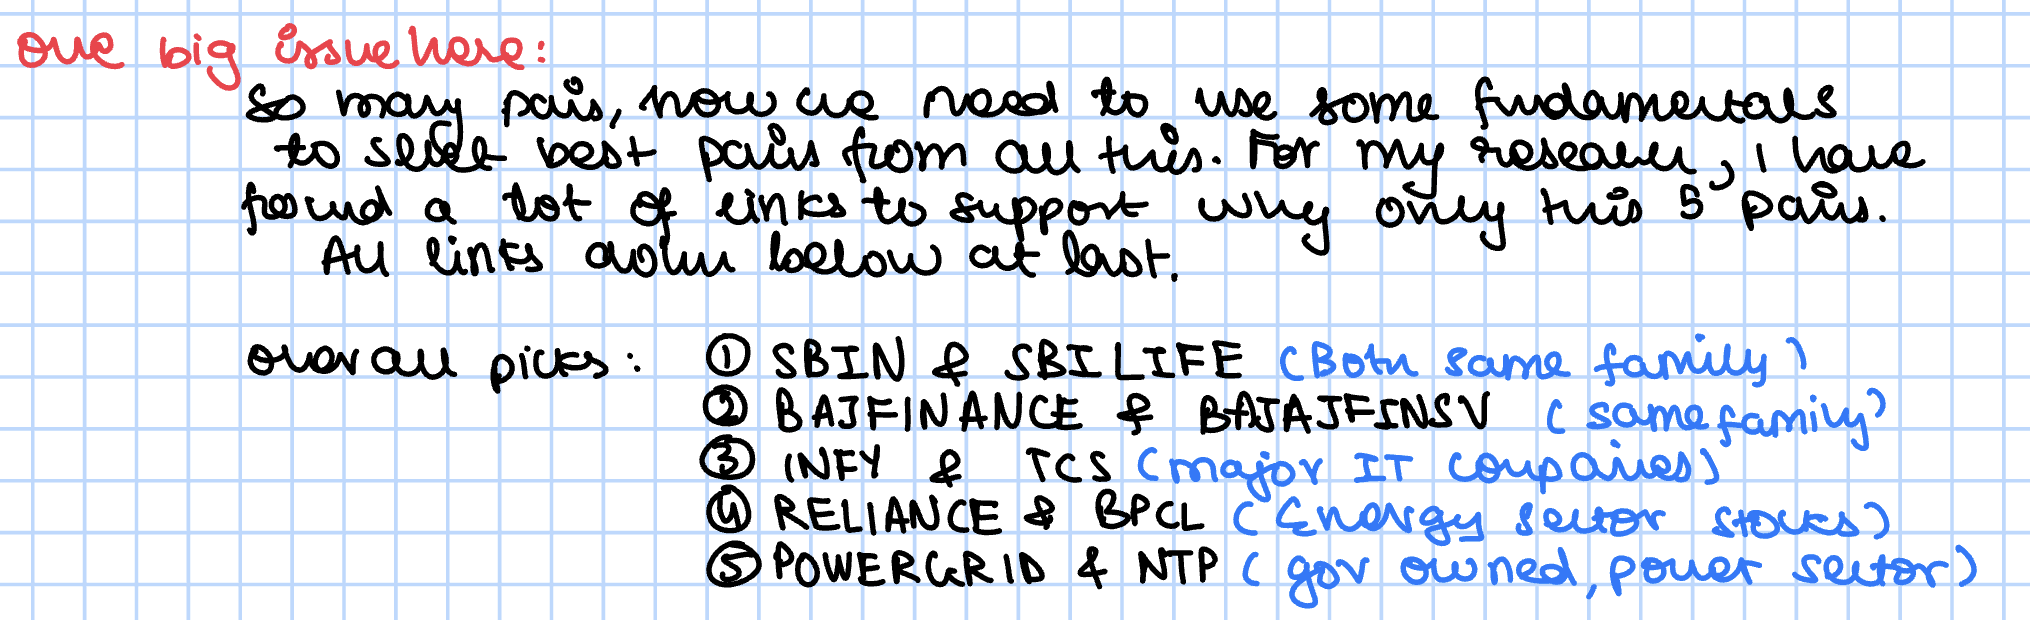 One big issue here:
So many pairs, now we need to use some fudamentals
to select best pairs from all this. For my research, I have
found a lot of links to support why only this 5 pairs.
All links down below at last.
overall picks: ① SBIN & SBILIFE (Both same family)
② BAJFINANCE & BAJAJFINSV (same family)
③ INFY & TCS (major IT companies)
④ RELIANCE & BPCL (Energy sector stocks)
⑤ POWERGRID & NTP (gov owned, power sector)